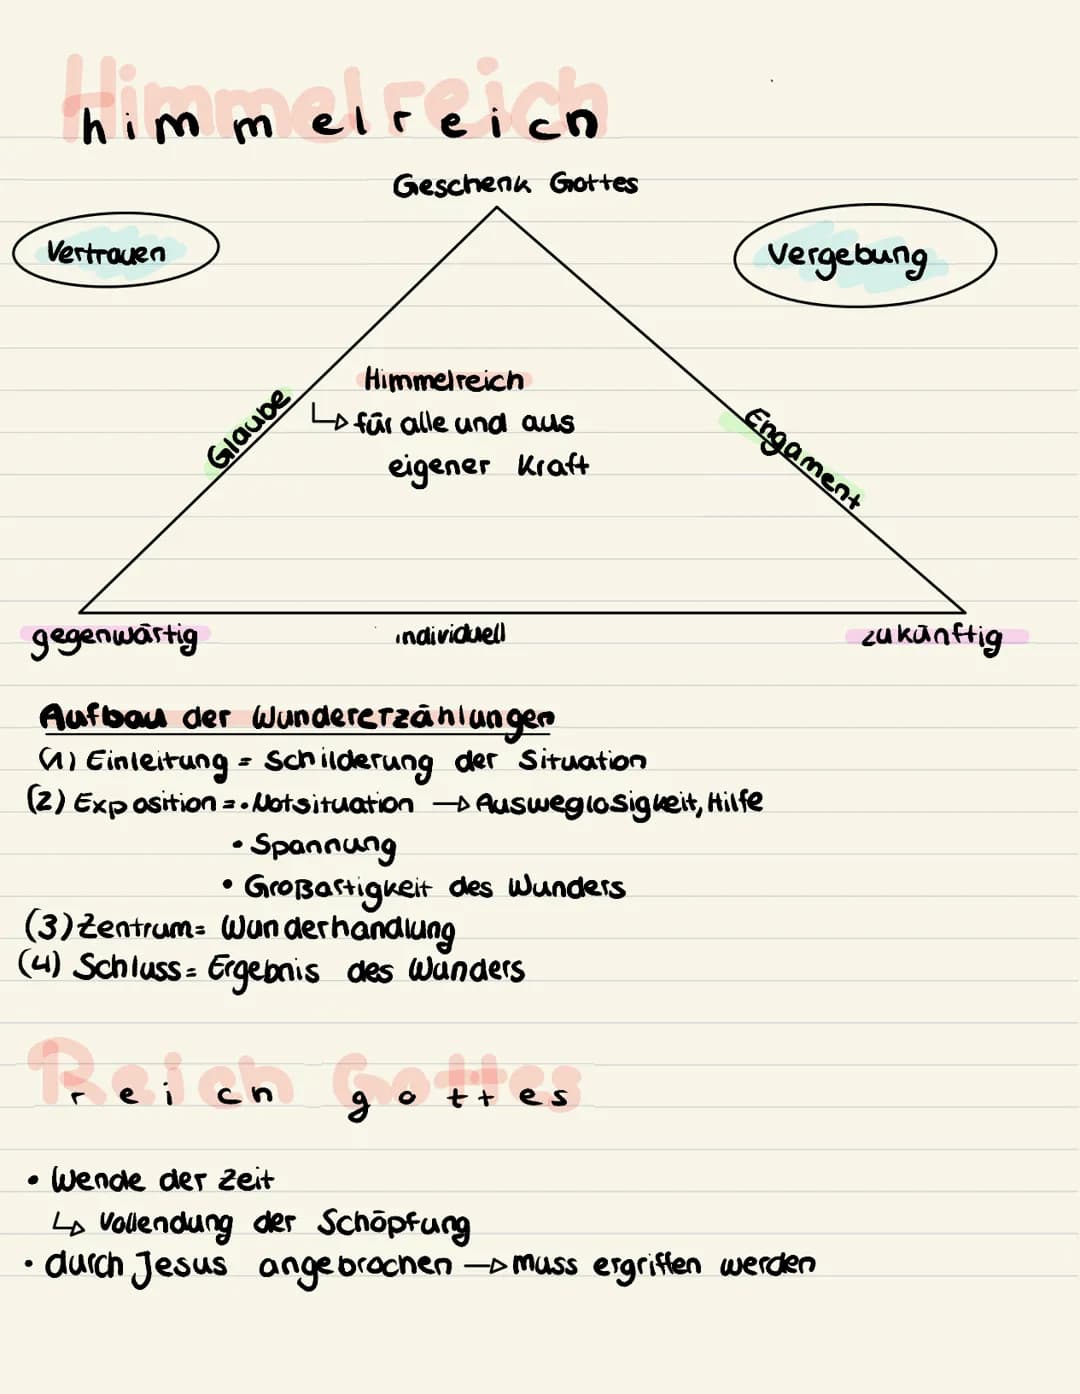 Himmelreich
himmelreich
Geschenk Gottes
Vertrauen
Vergebung
Himmelreich
↳ für alle und aus
eigener Kraft
Glaube
Engament
gegenwärtig
individuell
zukünftig
Aufbau der Wundererzählungen
(1) Einleitung = Schilderung der Situation
(2) Exposition = • Notsituation → Ausweglosigkeit, Hilfe
• Spannung
• Großartigkeit des Wunders
(3) Zentrum = Wunderhandlung
(4) Schluss = Ergebnis des Wunders
Reich Gottes
reich gottes
• Wende der Zeit
↳ Vollendung der Schöpfung
• durch Jesus angebrochen → muss ergriffen werden